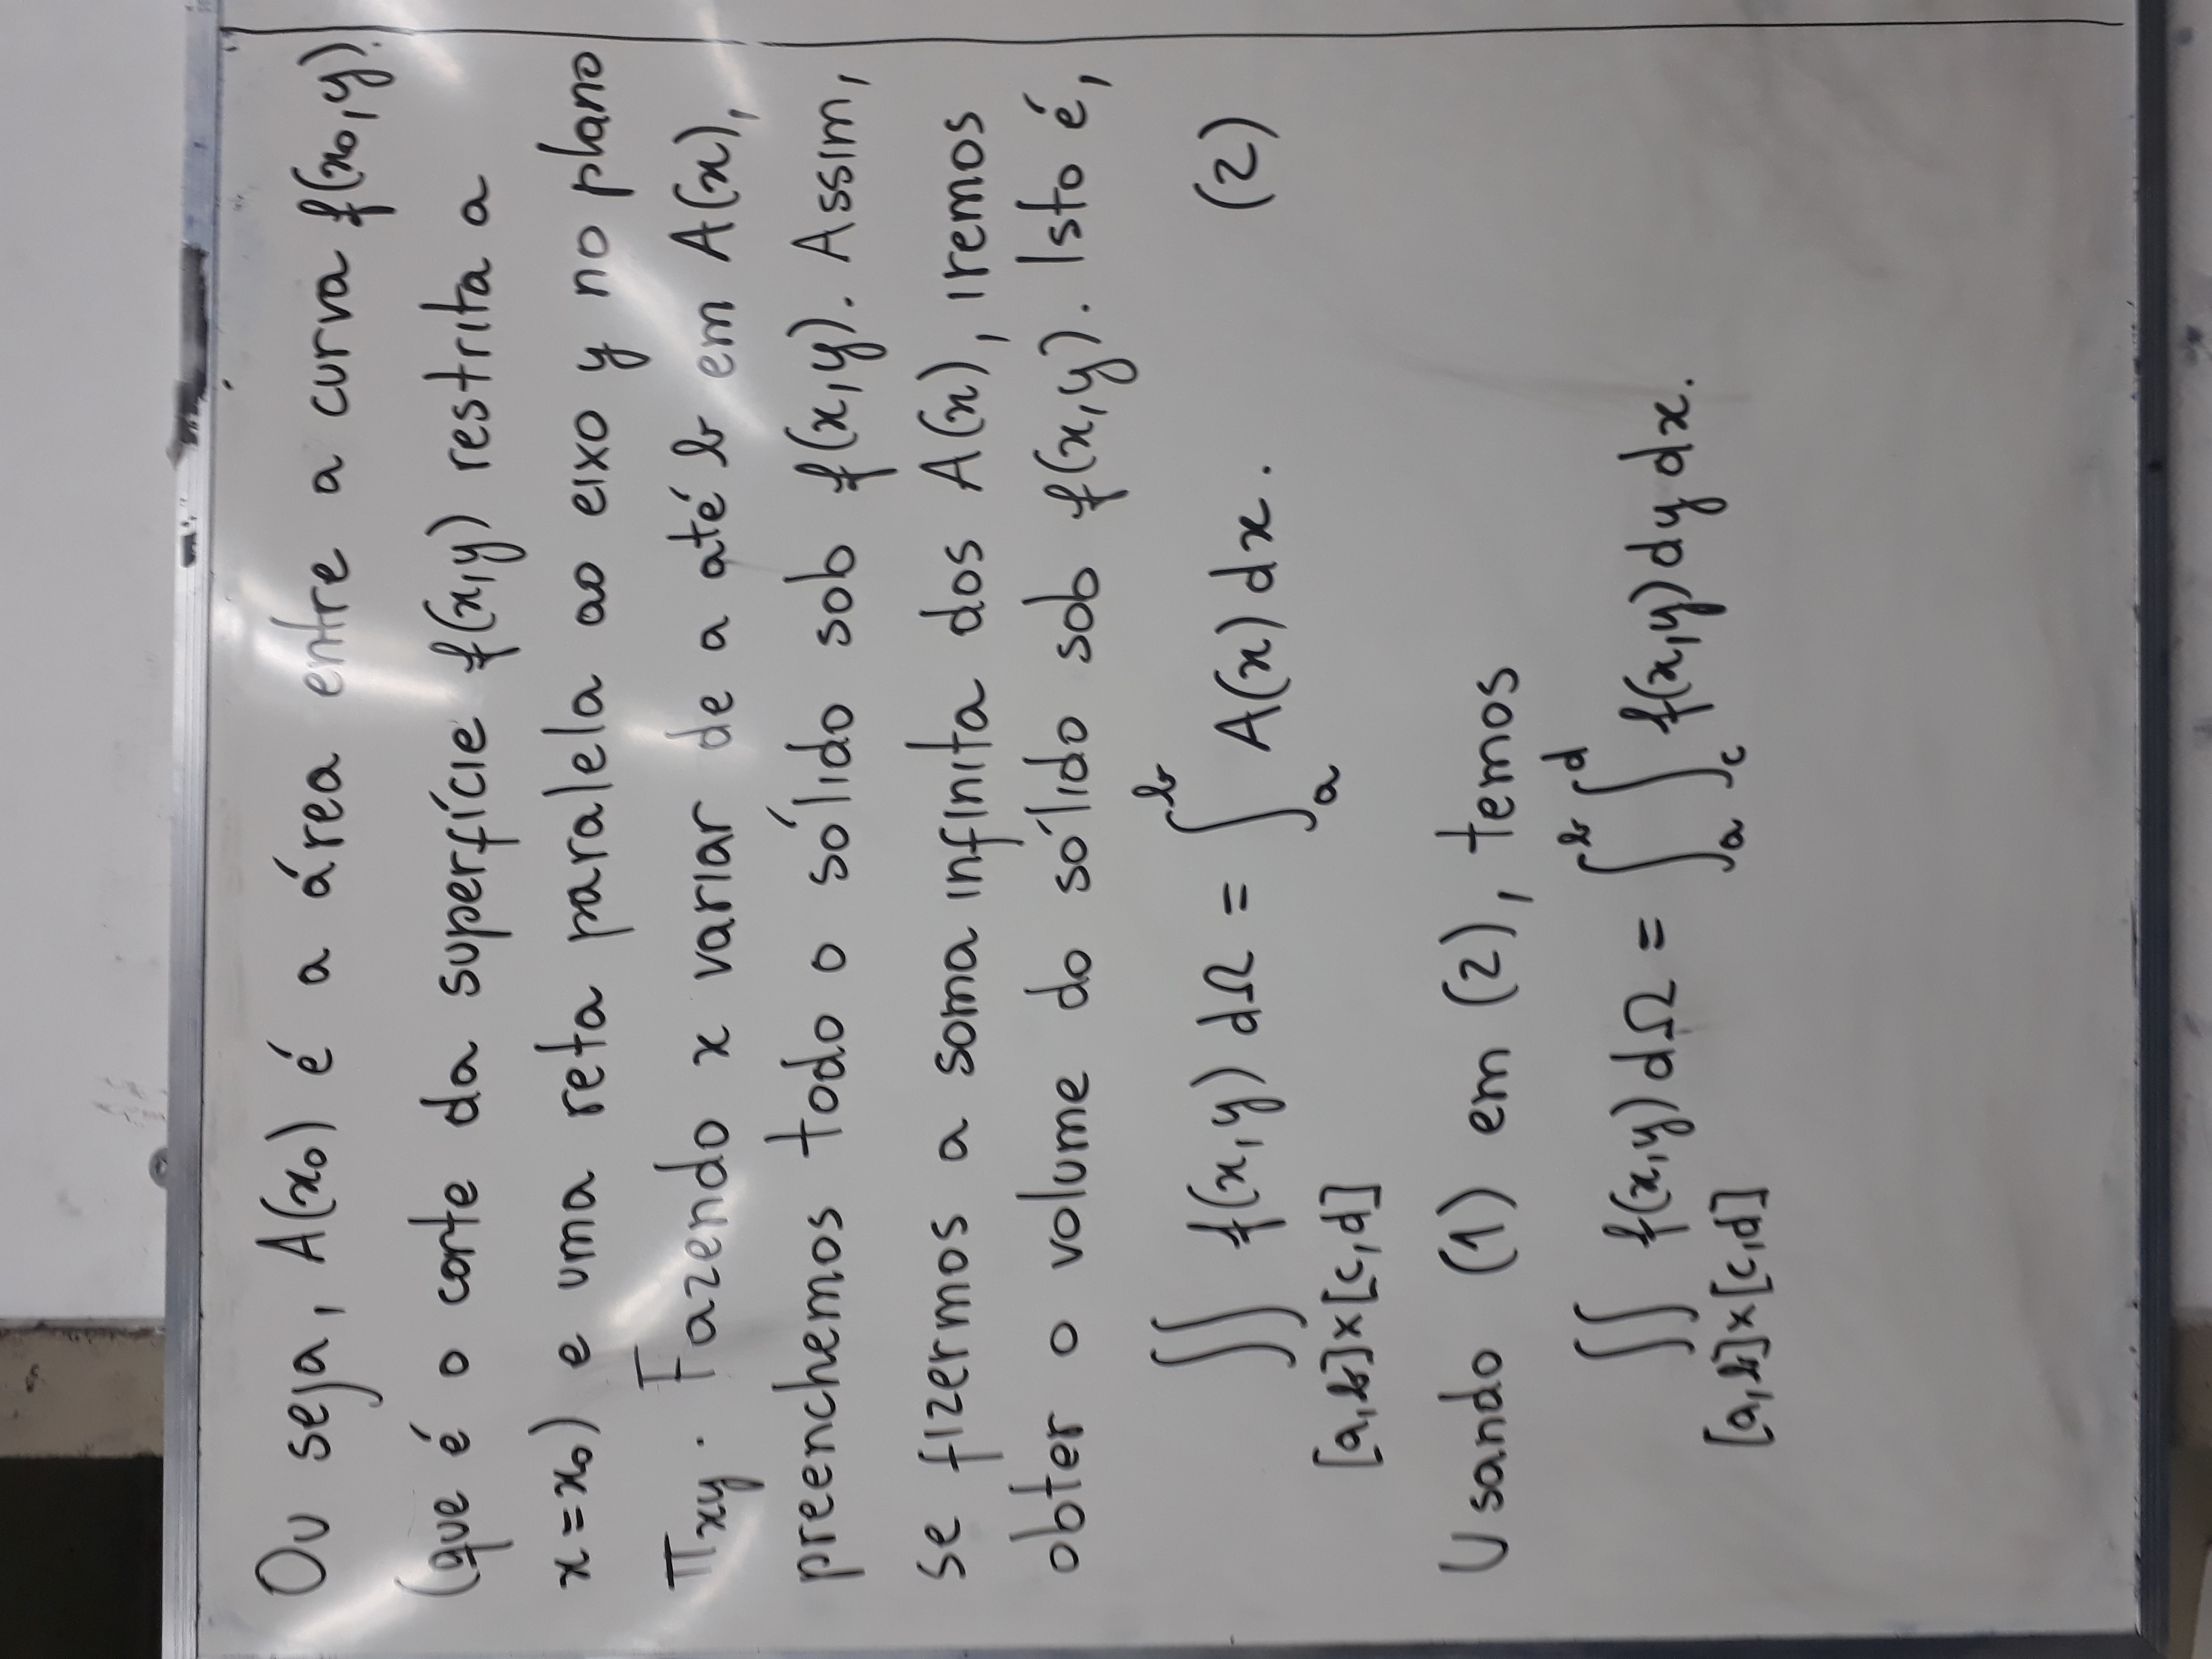 Ou seja, A(x₀) é a área entre a curva f(x₀,y)
(que é o corte da superfície f(x,y) restrita a
x=x₀) e uma reta paralela ao eixo y no plano
πxy. Fazendo x variar de a até b em A(x),
preenchemos todo o sólido sob f(x,y). Assim,
se fizermos a soma infinita dos A(x), iremos
obter o volume do sólido sob f(x,y). Isto é,
∬_{[a,b]×[c,d]} f(x,y) dΩ = ∫_a^b A(x) dx. (2)
Usando (1) em (2), temos
∬_{[a,b]×[c,d]} f(x,y) dΩ = ∫_a^b ∫_c^d f(x,y) dy dx.